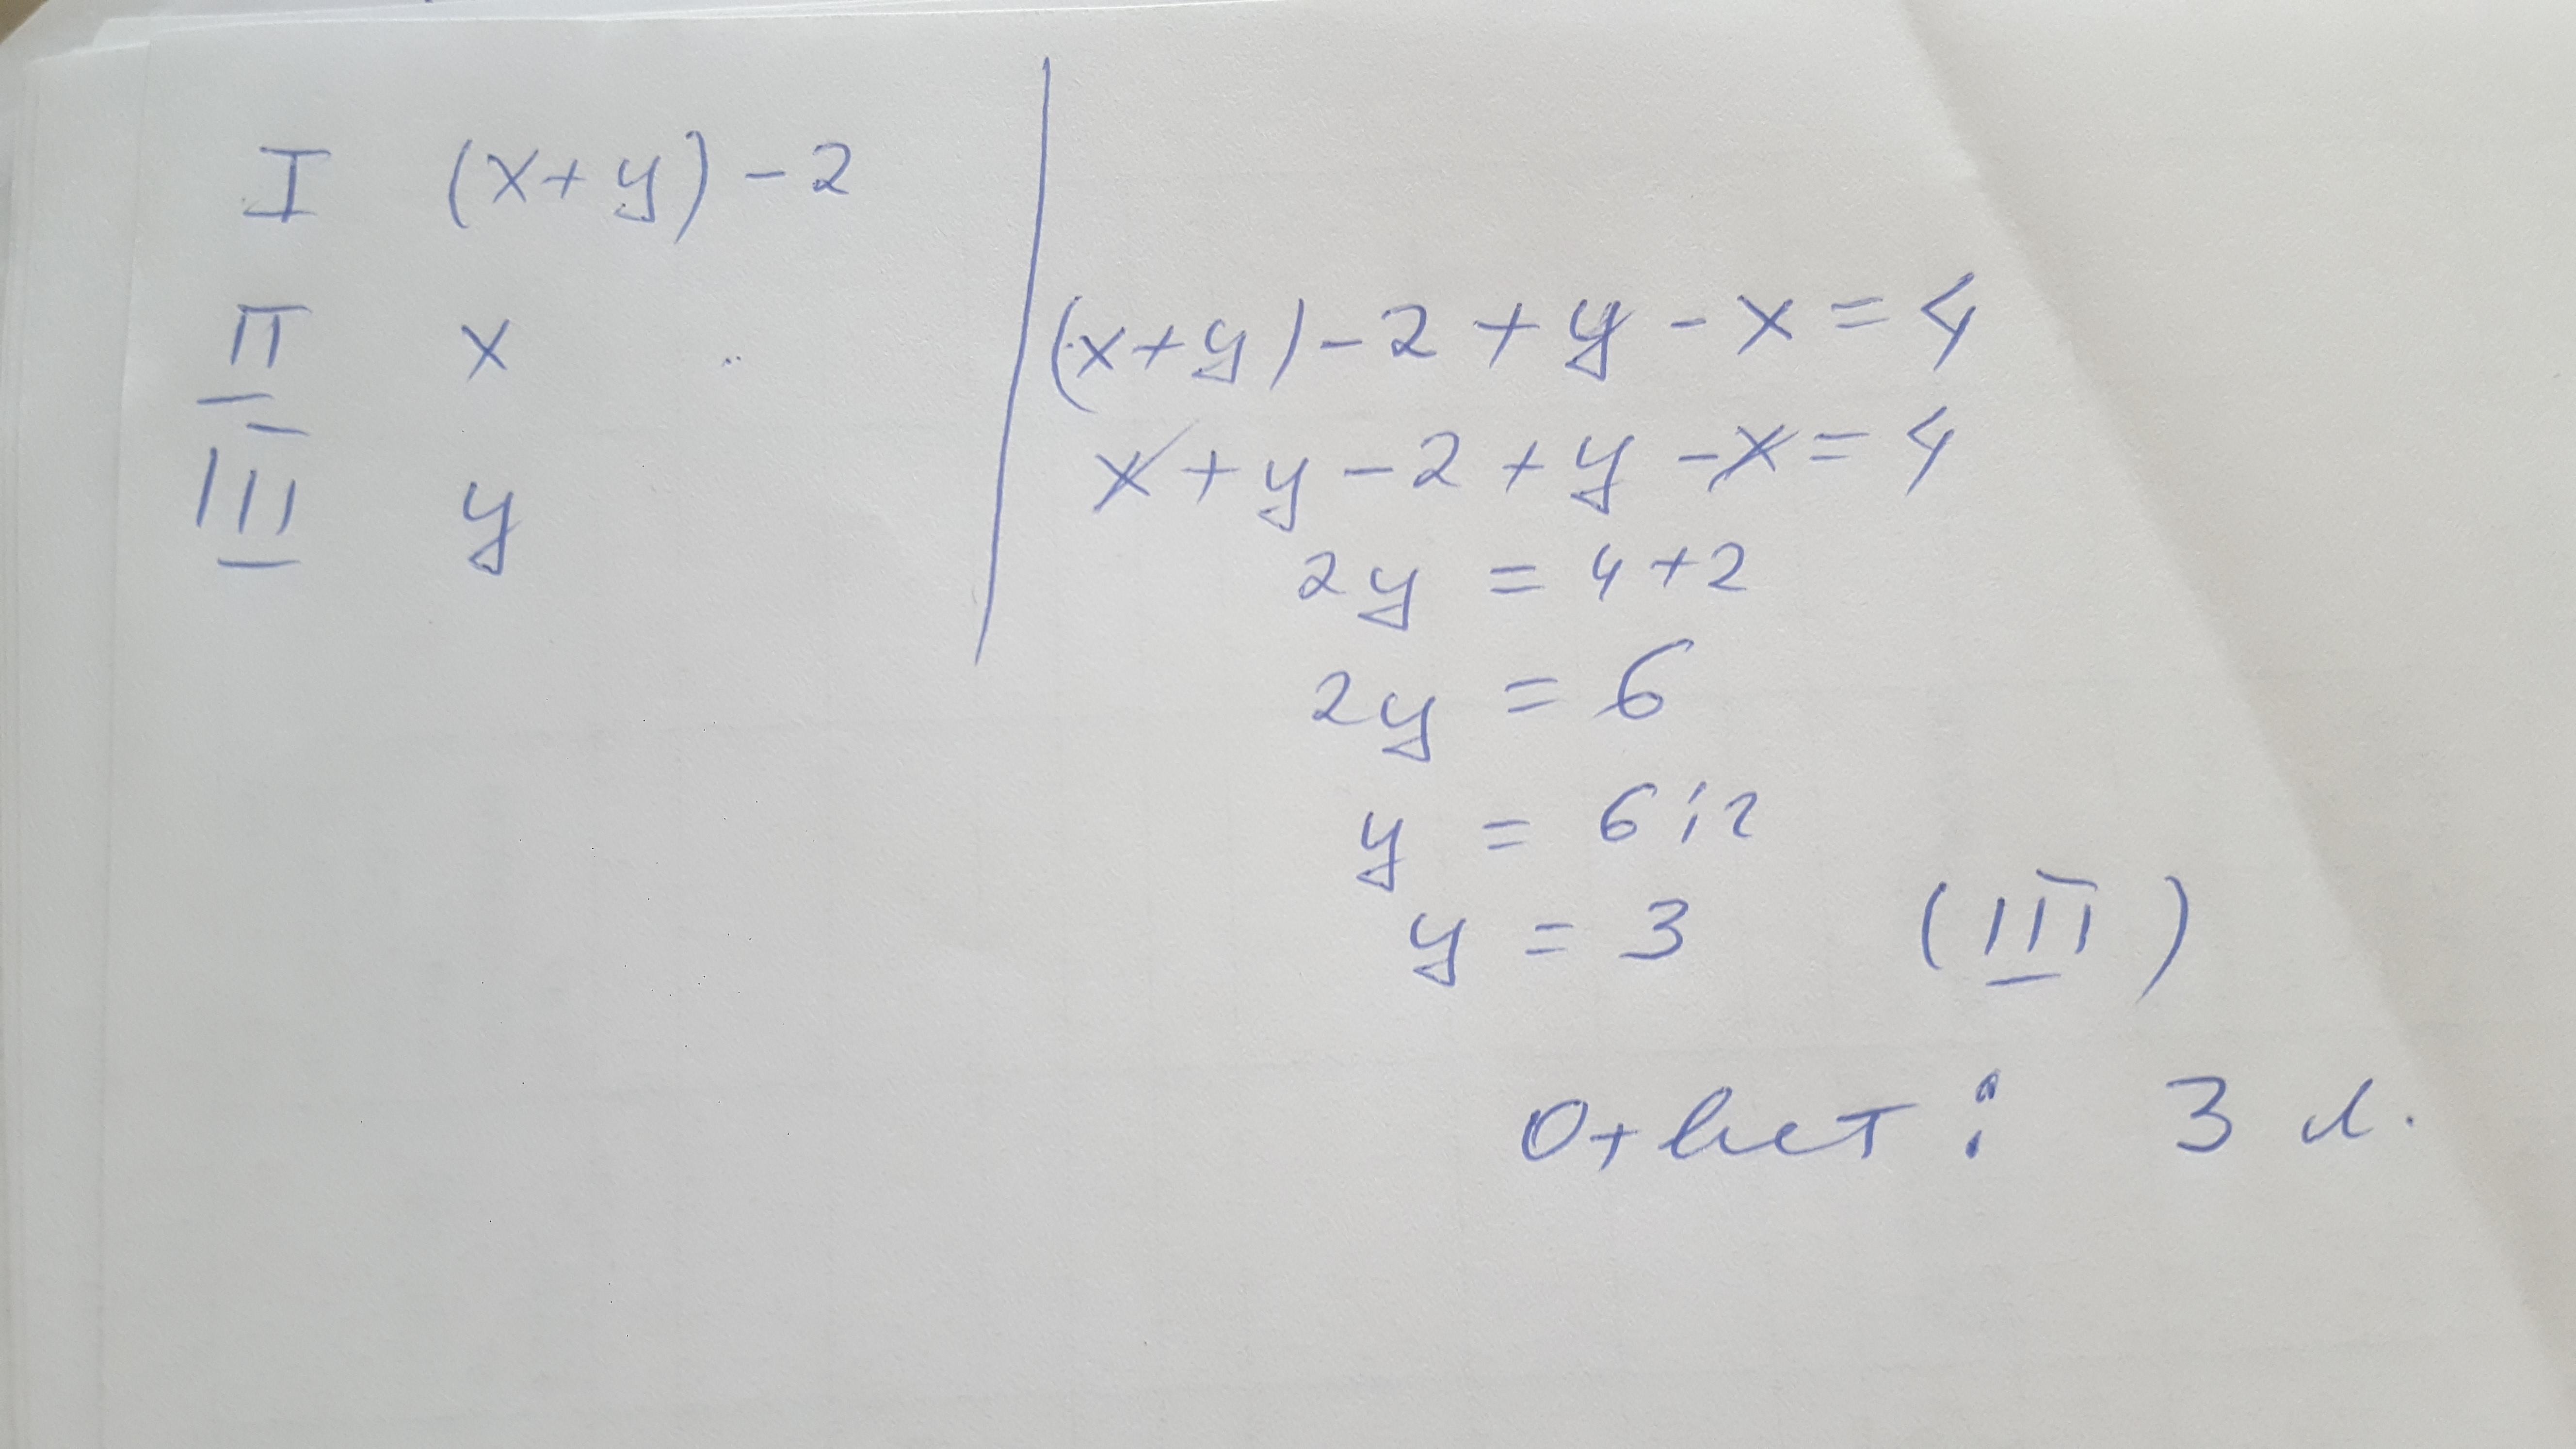 I (x+y)-2
II x
III y
(x+y)-2+y-x=4
x+y-2+y-x=4
2y = 4+2
2y = 6
y = 6:2
y = 3 (III)
Ответ: 3 л.